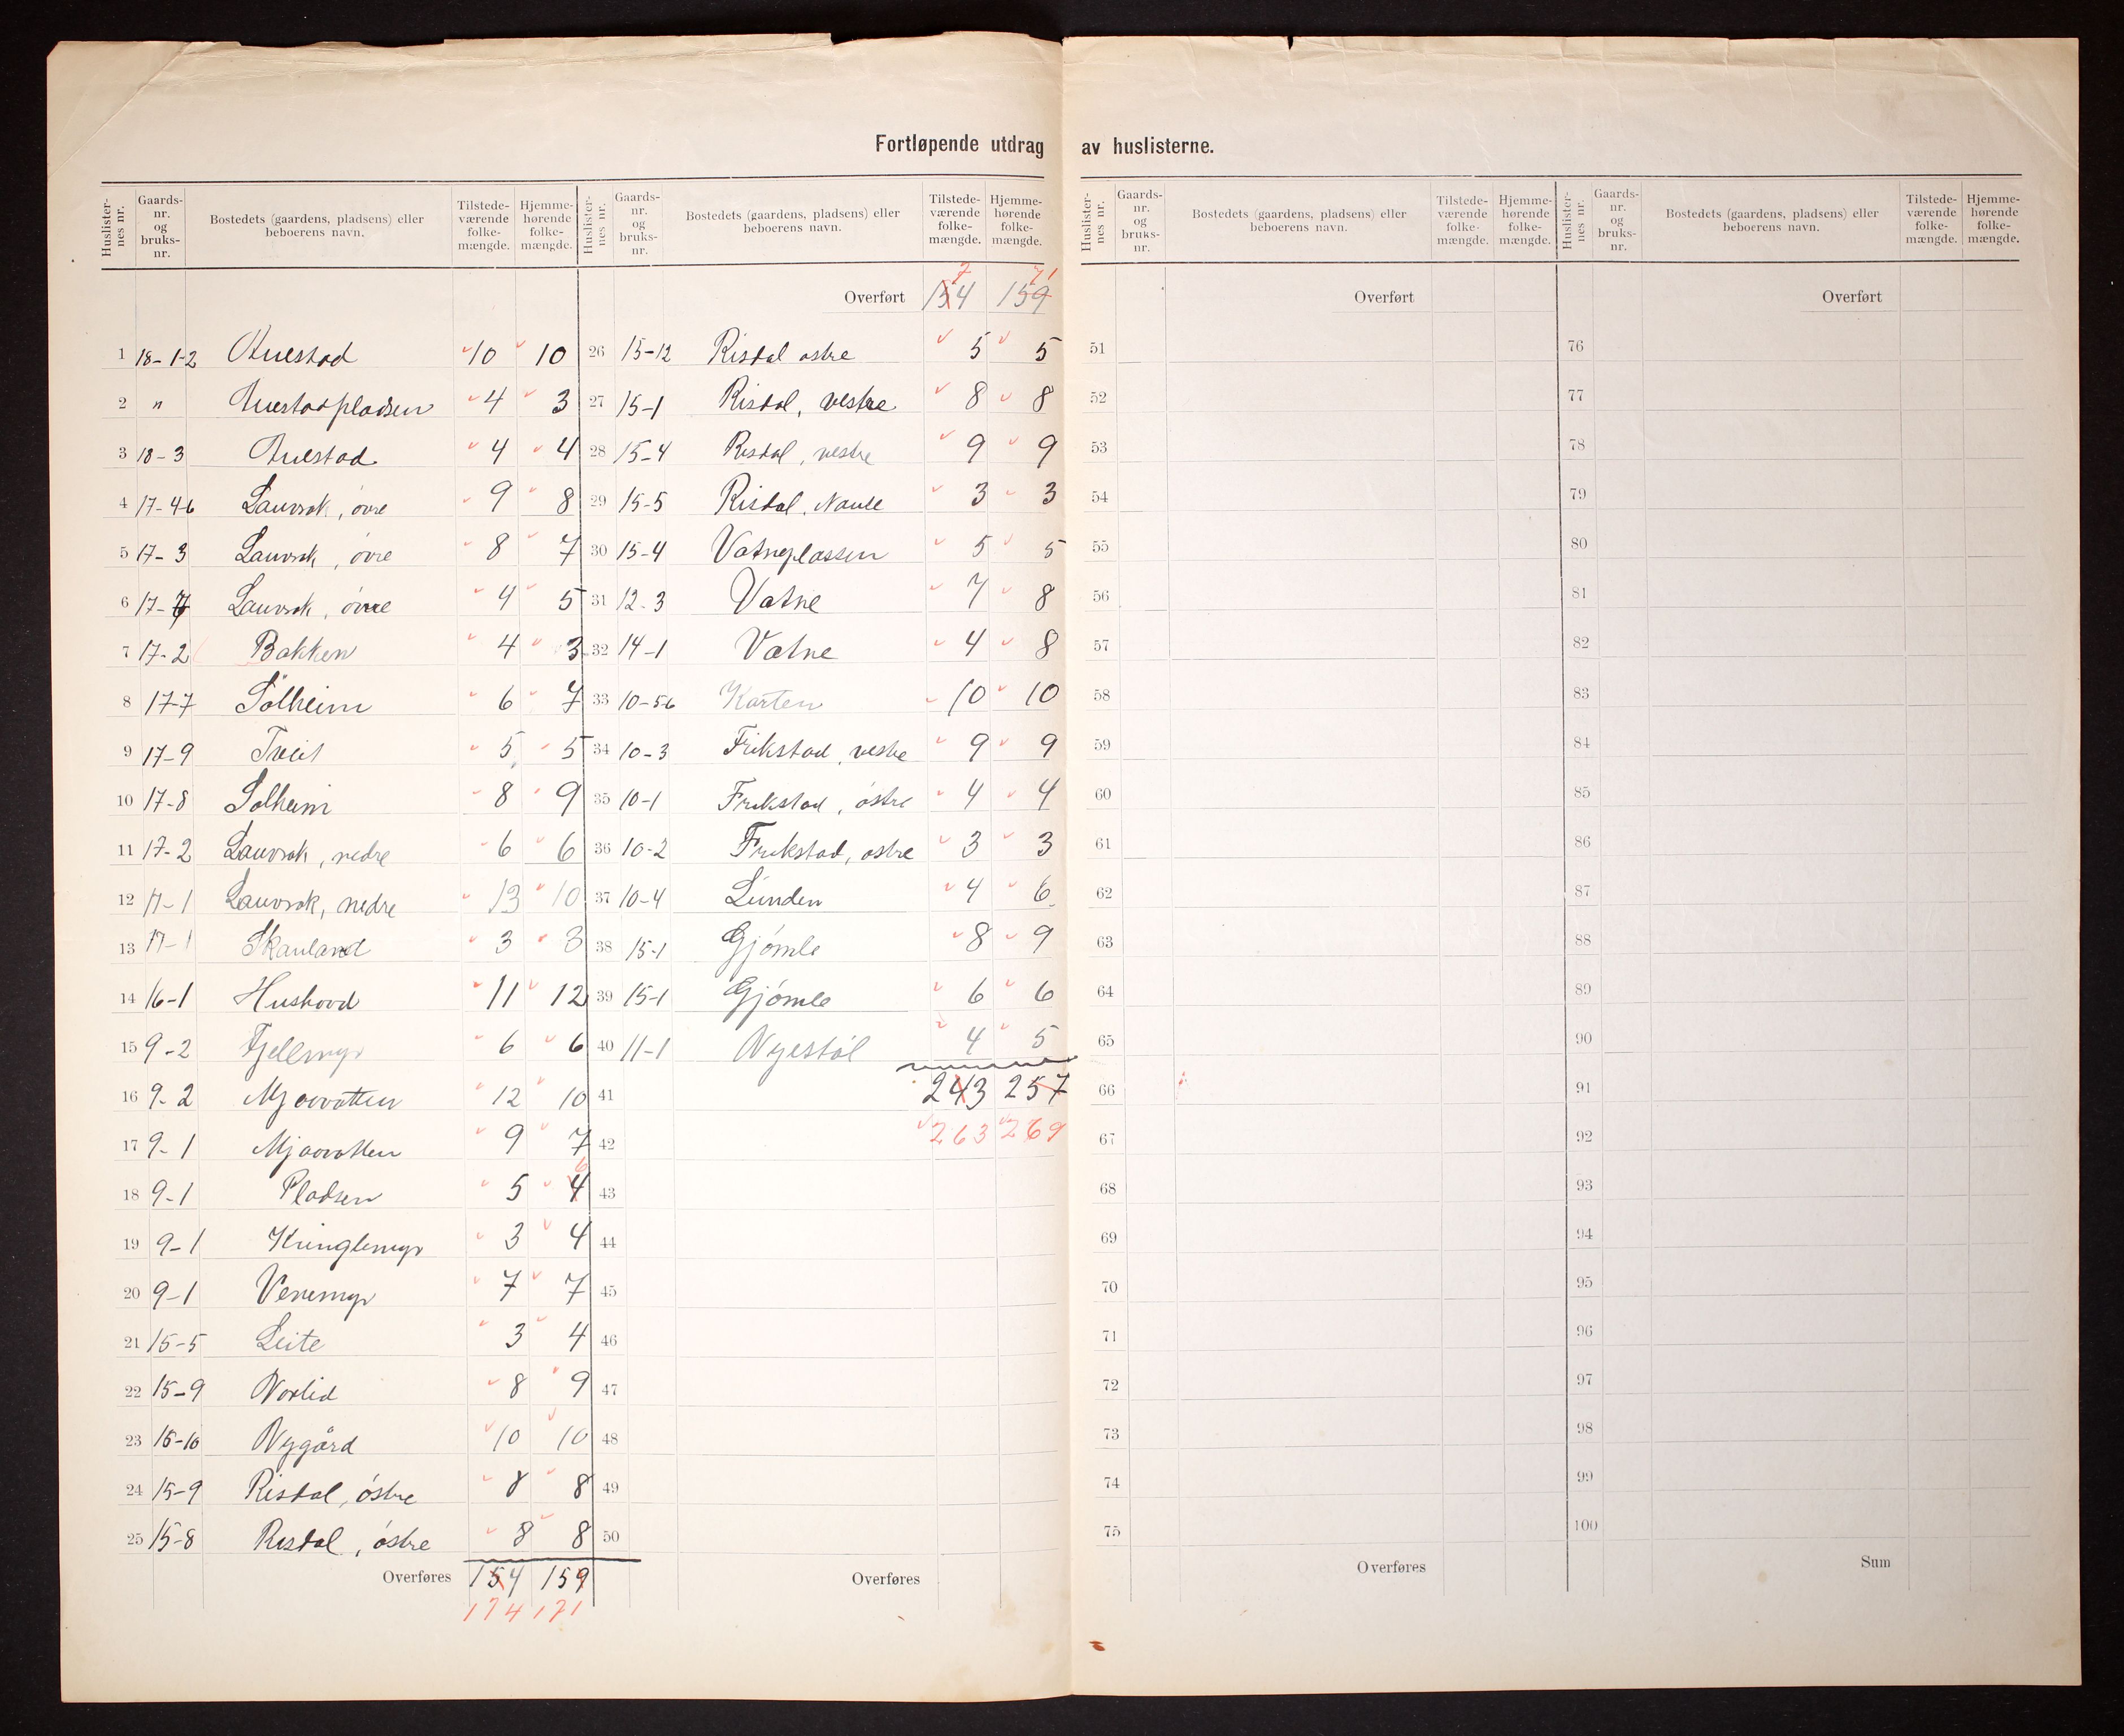 Fortløpende utdrag av huslisterne.
Huslister-nes nr. Gaards-nr. og bruks-nr. Bostedets (gaardens, pladsens) eller beboerens navn. Tilstede-værende folke-mængde. Hjemme-hørende folke-mængde.
1 18-1-2 Auestad 10 10
2 " Auestadpladsen 4 3
3 18-3 Auestad 4 4
4 17-4-6 Lauvrak, øvre 9 8
5 17-3 Lauvrak, øvre 8 7
6 17-7 Lauvrak, øvre 4 5
7 17-2 Bakken 4 3
8 17-7 Solheim 6 7
9 17-9 Tveit 5 5
10 17-8 Solheim 8 9
11 17-2 Lauvrak, nedre 6 6
12 17-1 Lauvrak, nedre 13 10
13 17-1 Skauland 3 3
14 16-1 Hushovd 11 12
15 9-2 Fjellmyr 6 6
16 9-2 Mjaavatten 12 10
17 9-1 Mjaavatten 9 7
18 9-1 Pladsen 5 4 6
19 9-1 Kringlemyr 3 4
20 9-1 Venemyr 7 7
21 15-5 Leite 3 4
22 15-9 Norlid 8 9
23 15-10 Nygård 10 10
24 15-9 Risdal, østre 8 8
25 15-8 Risdal, østre 8 8
Overføres 154 159
174 171
Huslister-nes nr. Gaards-nr. og bruks-nr. Bostedets (gaardens, pladsens) eller beboerens navn. Tilstede-værende folke-mængde. Hjemme-hørende folke-mængde.
7 71
Overført 154 159
26 15-12 Risdal østre 5 5
27 15-1 Risdal, vestre 8 8
28 15-4 Risdal, vestre 9 9
29 15-5 Risdal, 3 3
30 15-4 Vatneplassen 5 5
31 12-3 Vatne 7 8
32 14-1 Vatne 4 8
33 10-5-6 Karten 10 10
34 10-3 Frikstad, vestre 9 9
35 10-1 Frikstad, østre 4 4
36 10-2 Frikstad, østre 3 3
37 10-4 Lunden 4 6
38 15-1 Gjømle 8 9
39 15-1 Gjømle 6 6
40 11-1 Nyestøl 4 5
41 243 257
42 263 269
43
44
45
46
47
48
49
50
Overføres
Huslister-nes nr. Gaards-nr. og bruks-nr. Bostedets (gaardens, pladsens) eller beboerens navn. Tilstede-værende folke-mængde. Hjemme-hørende folke-mængde.
Overført
51
52
53
54
55
56
57
58
59
60
61
62
63
64
65
66
67
68
69
70
71
72
73
74
75
Overføres
Huslister-nes nr. Gaards-nr. og bruks-nr. Bostedets (gaardens, pladsens) eller beboerens navn. Tilstede-værende folke-mængde. Hjemme-hørende folke-mængde.
Overført
76
77
78
79
80
81
82
83
84
85
86
87
88
89
90
91
92
93
94
95
96
97
98
99
100
Sum